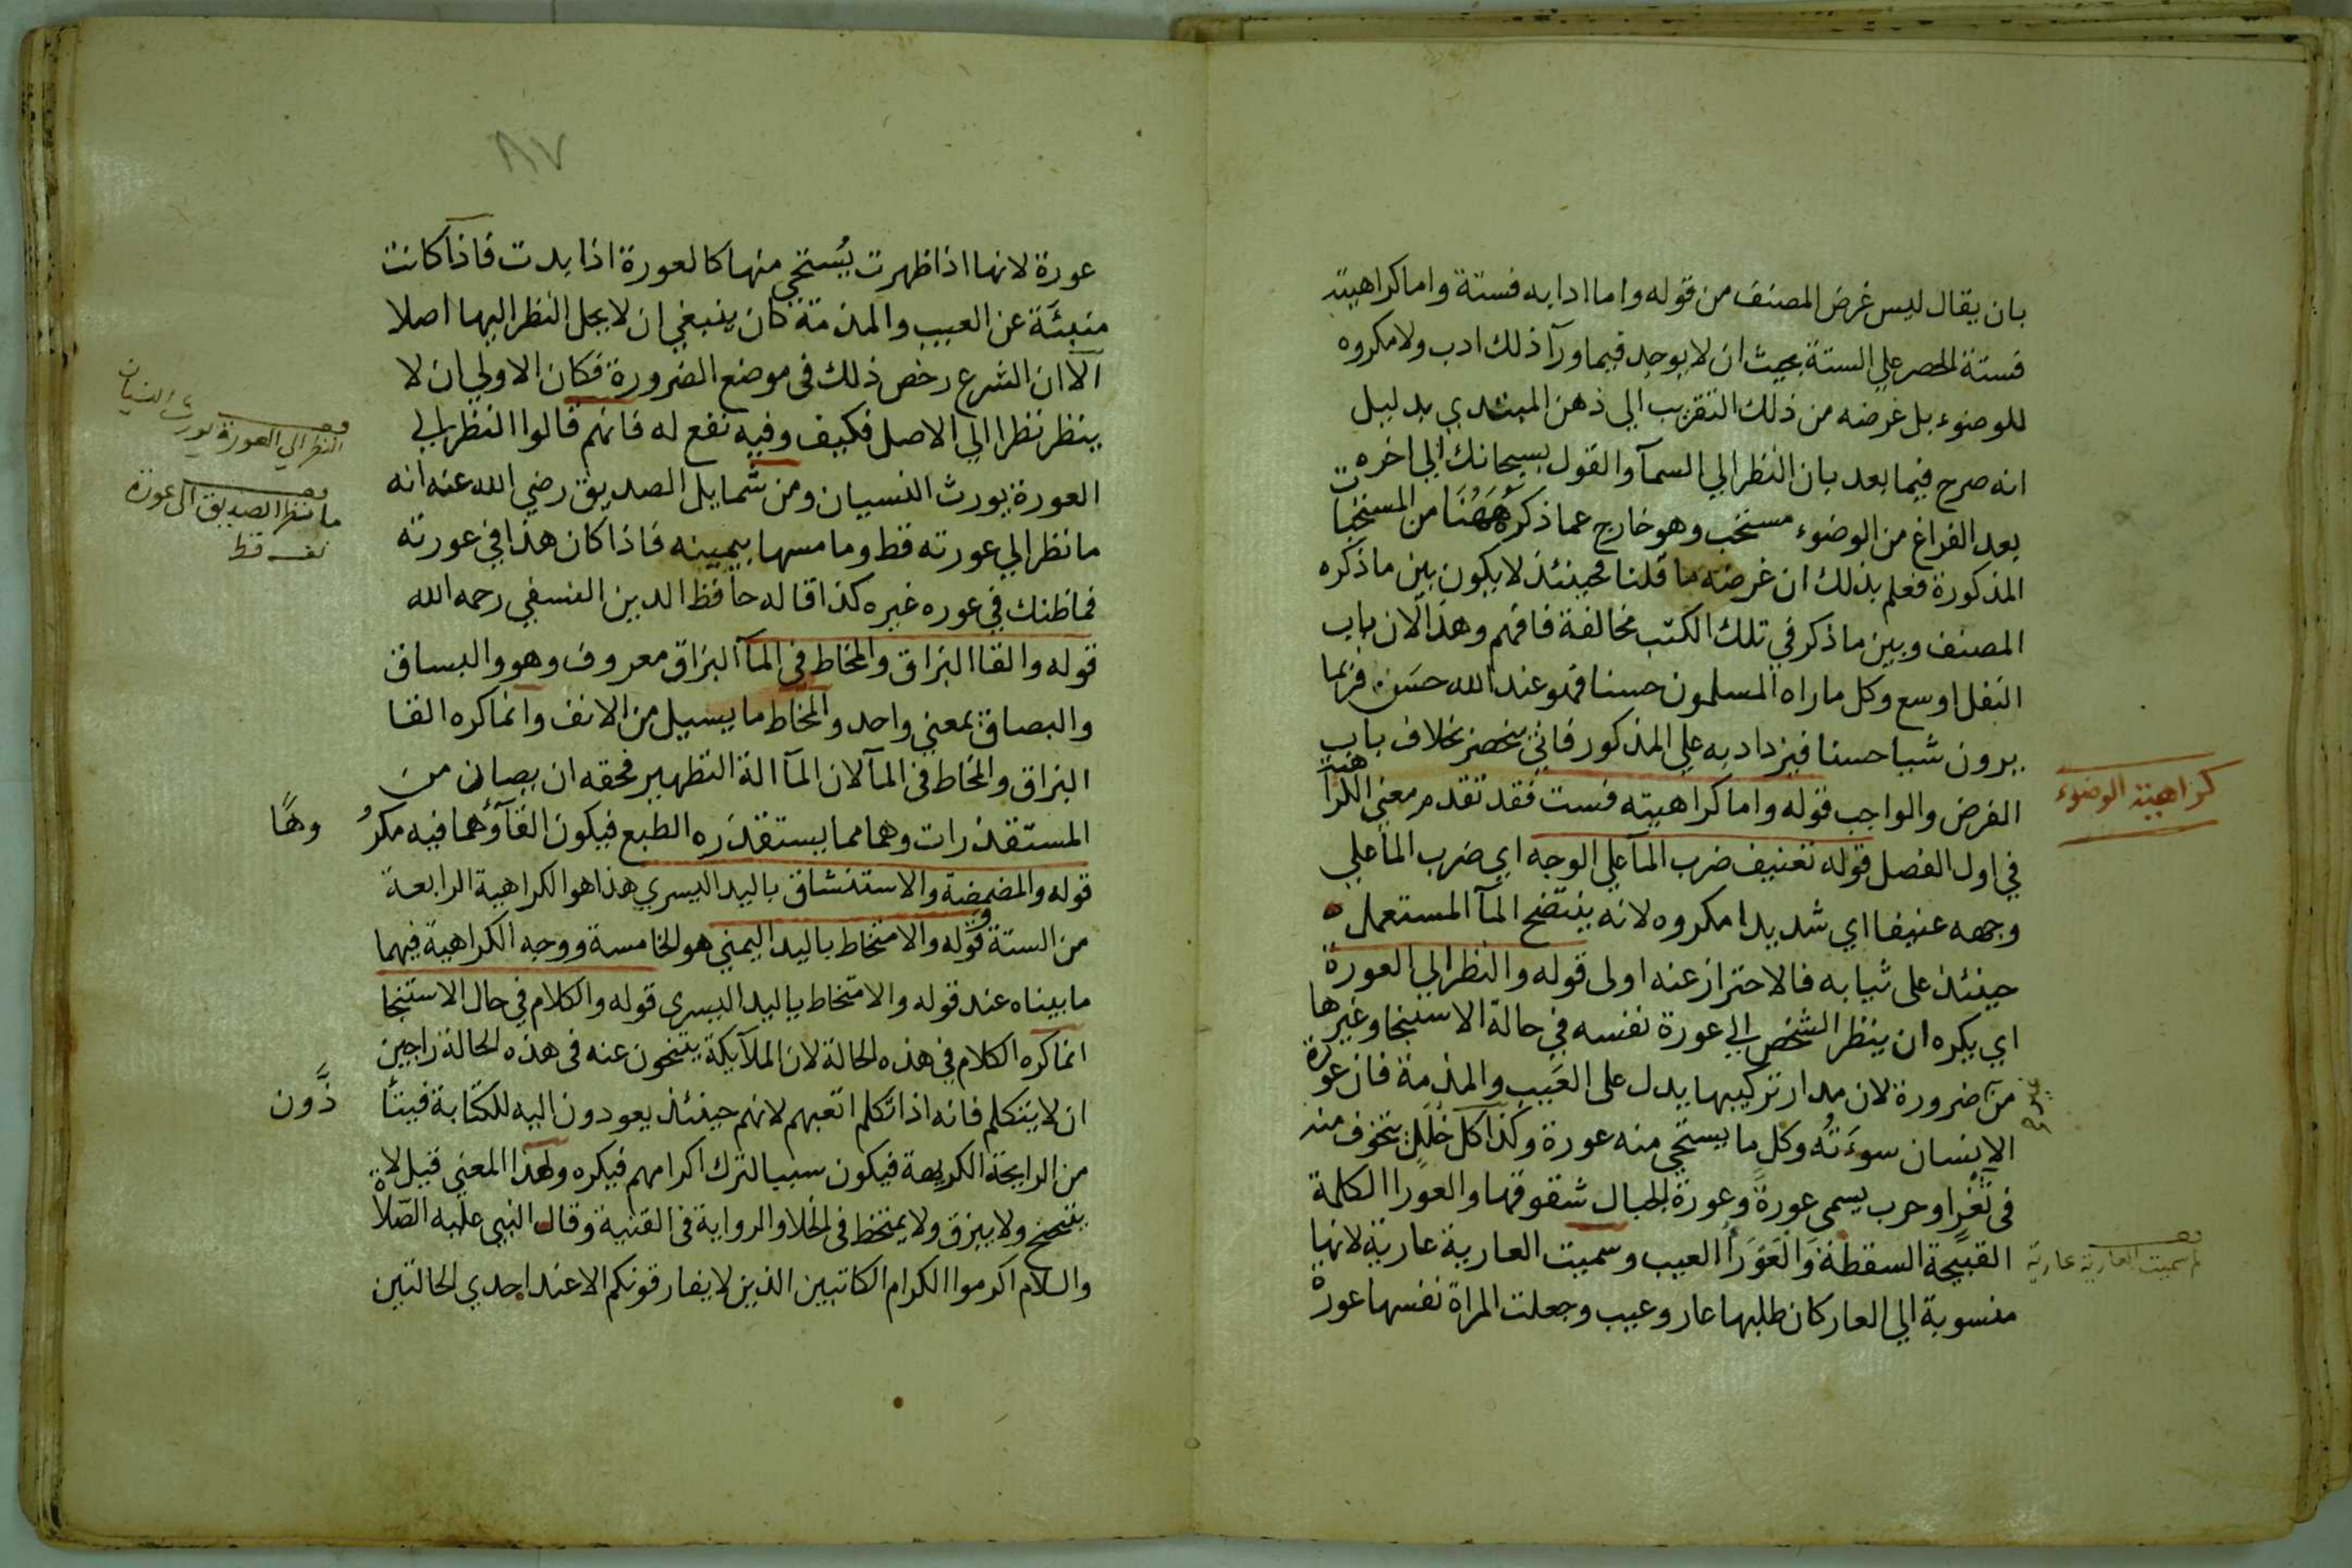 بان يقال ليس غرض المصنف من قوله واما ادابه فستة واما كراهيته
فستة الحصر علي الستة بحيث ان لا يوجد فيما ورآ ذلك ادب ولا مكروه
للوضوء بل غرضه من ذلك التقريب الي ذهن المبتدي بدليل
انه صرح فيما بعد بان النظر الي السمآ والقول بسبحانك الي اخره
بعد الفراغ من الوضوء مستحب وهو خارج عما ذكره ههنا من المستحبات
المذكورة فعلم بذلك ان غرضه ما قلنا فحينئذ لا يكون بين ما ذكره
المصنف وبين ما ذكر في تلك الكتب مخالفة فافهم وهذا لان باب
النفل اوسع وكل ما راه المسلمون حسنا فهو عند الله حسن فربما
يرون شيا حسنا فيزداد به علي المذكور فاني ينحصر بخلاف باب
الفرض والواجب قوله واما كراهيته فست فقد تقدم معني الكراهية
كراهية الوضوء
في اول الفصل قوله تعنيف ضرب المآ علي الوجه اي ضرب المآ علي
وجهه عنيفا اي شديدا مكروه لانه ينتضح المآ المستعمل
حينئذ على ثيابه فالاحتراز عنه اولى قوله والنظر الي العورة
اي يكره ان ينظر الشخص الي عورة نفسه في حالة الاستنجا وغيرها
من ضرورة لان مدار تركيبها يدل على العيب والمذمة فان عورة
الانسان سوءته وكل ما يستحي منه عورة وكذا كل خلل يتخوف منه
في ثغر او حرب يسمى عورة وعورة الجبال شقوقها والعورا الكلمة
القبيحة السقطة والعورا العيب وسميت العارية عارية لانها
لم سميت العارية عارية
منسوبة الي العار كان طلبها عار وعيب وجعلت المراة نفسها عورة
٨٧
عورة لانها اذا ظهرت يستحي منها كالعورة اذا بدت فاذا كانت
منبئة عن العيب والمذمة كان ينبغي ان لا يحل النظر اليها اصلا
الا ان الشرع رخص ذلك في موضع الضرورة فكان الاولي ان لا
ينظر نظرا الي الاصل فكيف وفيه نفع له فانهم قالوا النظر الي
النظر الي العورة يورث النسيان
العورة يورث النسيان ومن شمايل الصديق رضي الله عنه انه
ما نظر الصديق الى عورة
نفسه قط
ما نظر الي عورته قط وما مسها بيمينه فاذا كان هذا في عورته
فما ظنك في عوره غيره كذا قاله حافظ الدين النسفي رحمه الله
قوله والقا البزاق والمخاط في المآ البزاق معروف وهو والبساق
والبصاق بمعني واحد والمخاط ما يسيل من الانف وانما كره القا
البزاق والمخاط في المآ لان المآ الة التطهير فحقه ان يصان من
المستقذرات وهما مما يستقذره الطبع فيكون القآؤهما فيه مكرُ وهًا
قوله والمضمضة والاستنشاق باليد اليسري هذا هو الكراهية الرابعة
من الستة وقوله والامتخاط باليد اليمني هو الخامسة ووجه الكراهية فيهما
ما بيناه عند قوله والامتخاط باليد اليسرى قوله والكلام في حال الاستنجا
انما كره الكلام في هذه الحالة لان الملآيكة يتنحون عنه في هذه الحالة راجين
ان لا يتكلم فانه اذا تكلم اتعبهم لانهم حينئذ يعودون اليه للكتابة فيتأ ذَّون
من الرايحة الكريهة فيكون سببا لترك اكرامهم فيكره ولهذا المعني قيل لا
يتنحنح ولا يبزق ولا يمتخط في الخلا والرواية في القنية وقال النبي عليه الصّلاة
والسلام اكرموا الكرام الكاتبين الذين لا يفارقونكم الا عند احدي الحالتين